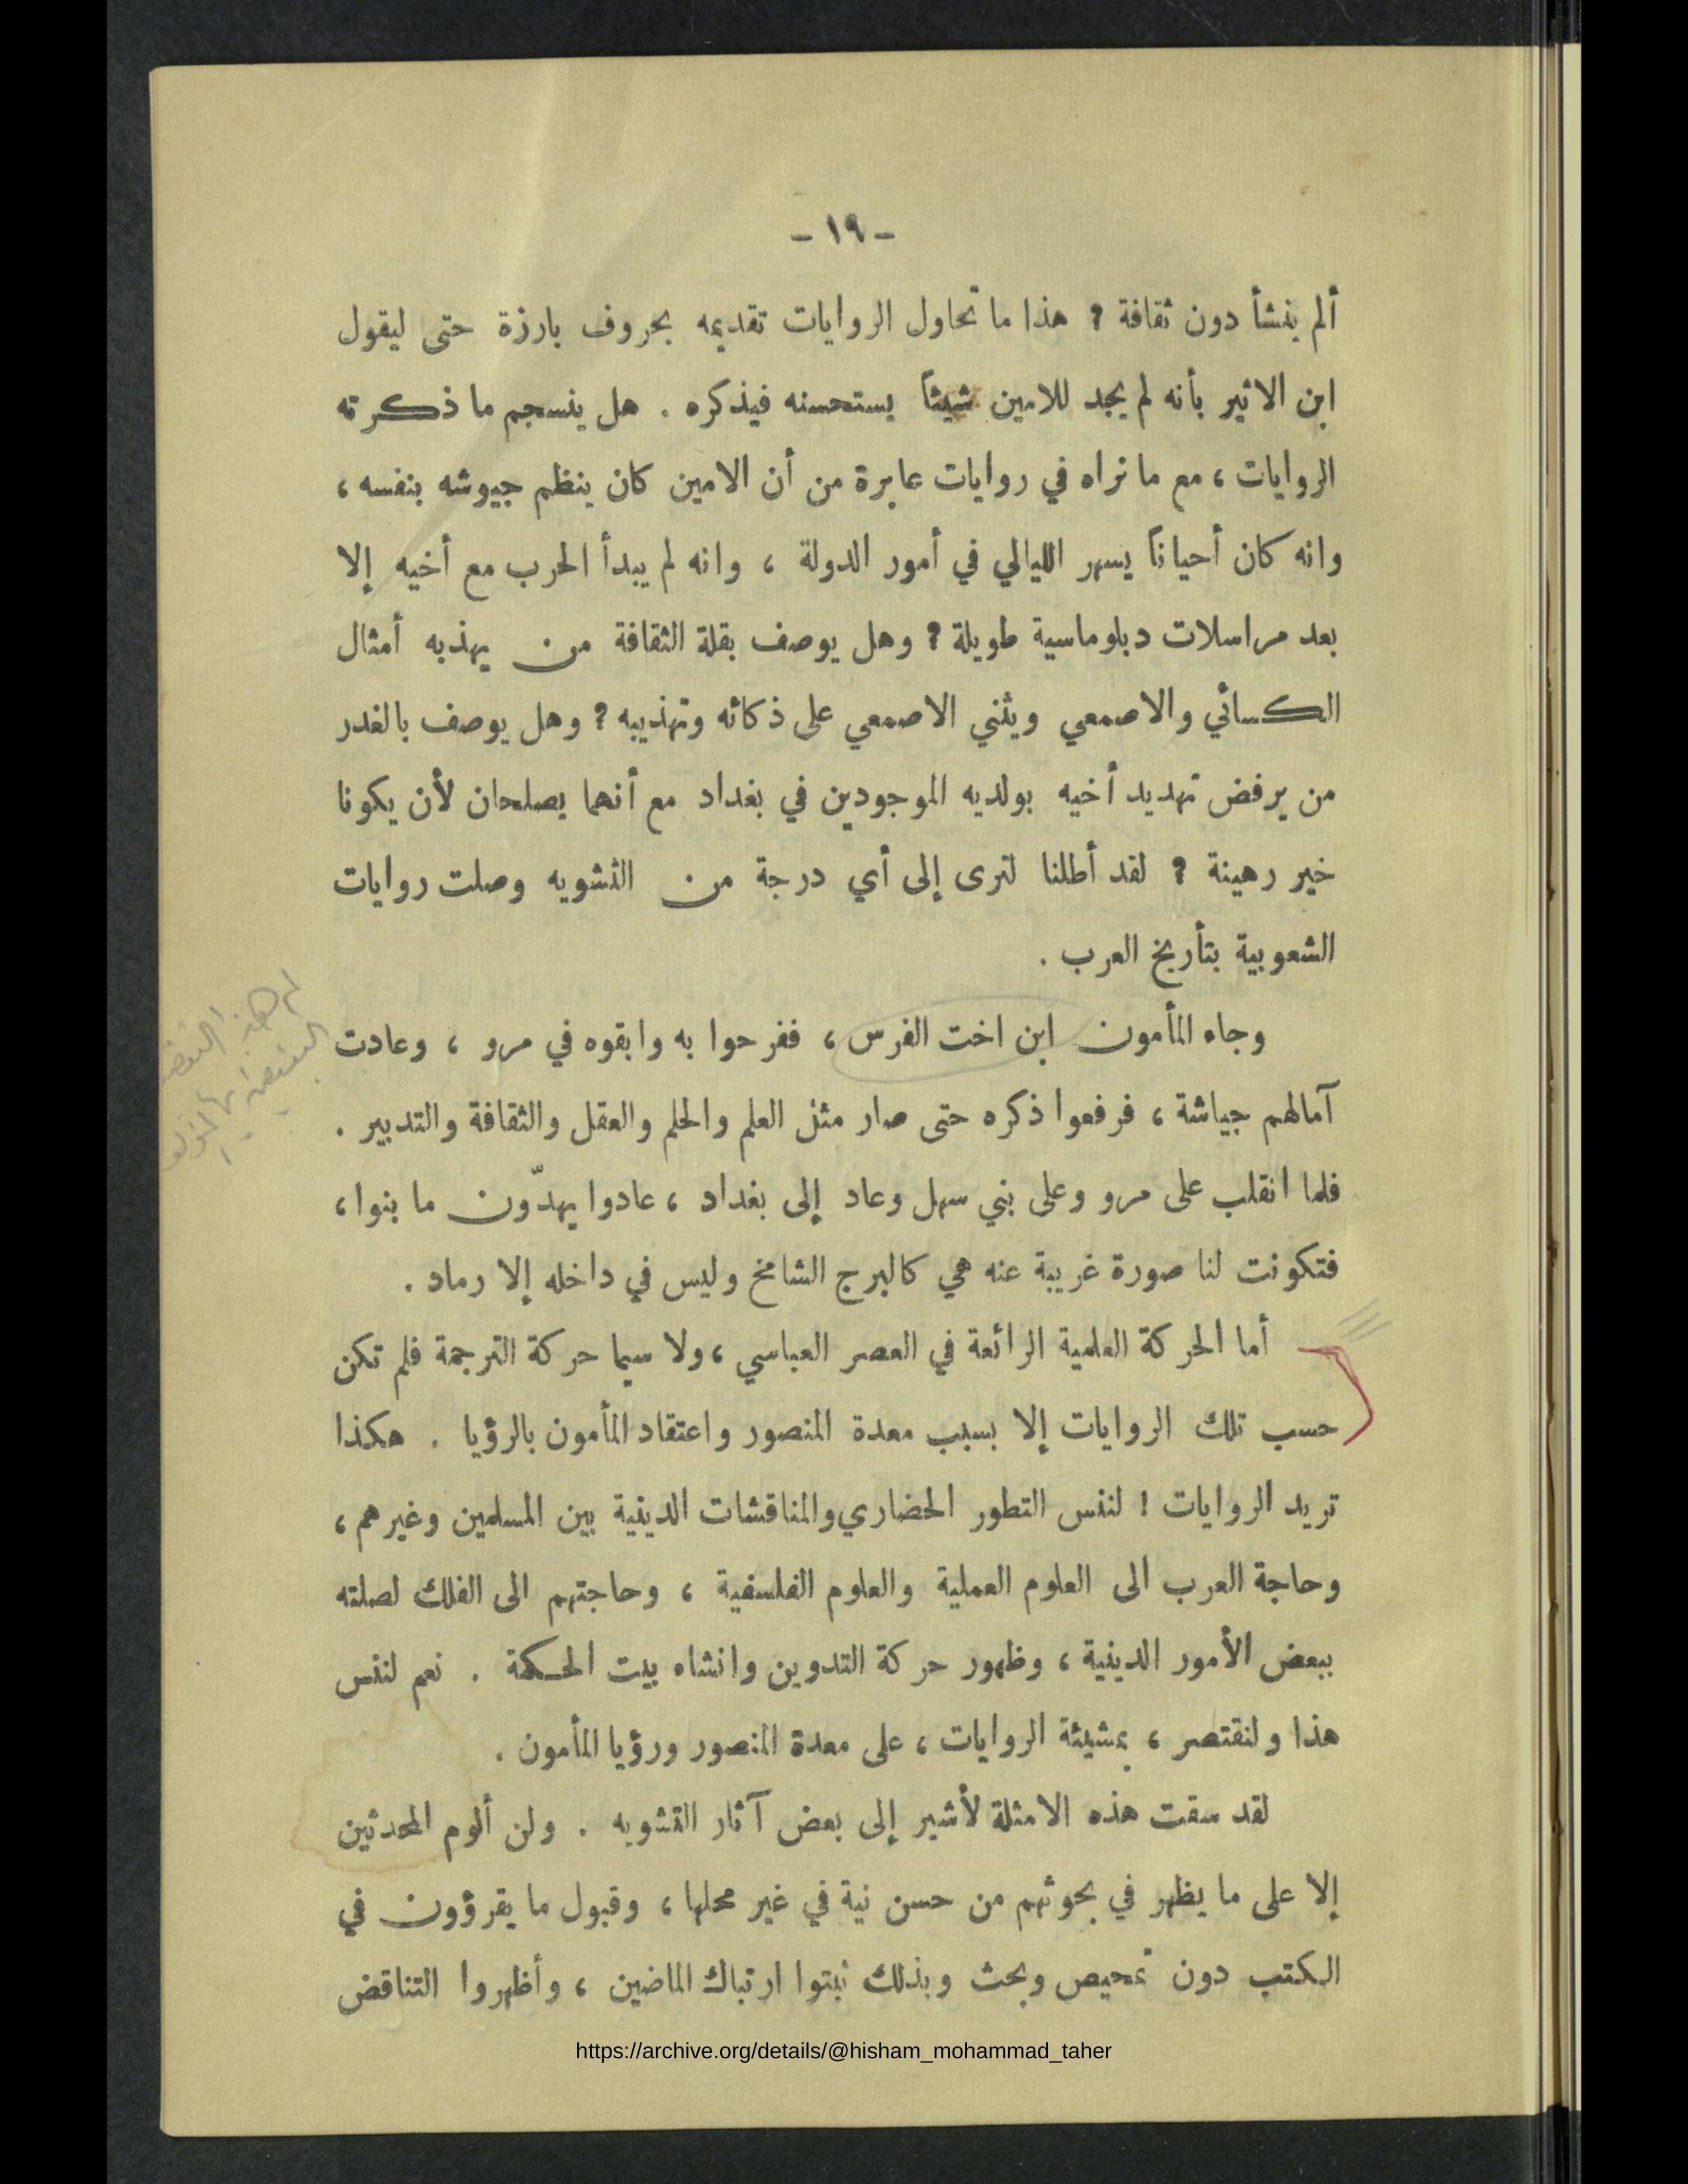 - ١٩ -
ألم ينشأ دون ثقافة ؟ هذا ما تحاول الروايات تقديمه بحروف بارزة حتى ليقول
ابن الاثير بأنه لم يجد للامين شيئاً يستحسنه فيذكره . هل ينسجم ما ذكرته
الروايات ، مع ما نراه في روايات عابرة من أن الامين كان ينظم جيوشه بنفسه ،
وانه كان أحياناً يسهر الليالي في أمور الدولة ، وانه لم يبدأ الحرب مع أخيه إلا
بعد مراسلات دبلوماسية طويلة ؟ وهل يوصف بقلة الثقافة من يهذبه أمثال
الكسائي والاصمعي ويثني الاصمعي على ذكائه وتهذيبه ؟ وهل يوصف بالغدر
من يرفض تهديد أخيه بولديه الموجودين في بغداد مع أنهما يصلحان لأن يكونا
خير رهينة ؟ لقد أطلنا لنرى إلى أي درجة من التشويه وصلت روايات
الشعوبية بتأريخ العرب .
وجاء المأمون ابن اخت الفرس ، ففرحوا به وابقوه في مرو ، وعادت
آمالهم جياشة ، فرفعوا ذكره حتى صار مثل العلم والحلم والعقل والثقافة والتدبير .
فلما انقلب على مرو وعلى بني سهل وعاد إلى بغداد ، عادوا يهدّون ما بنوا ،
فتكونت لنا صورة غريبة عنه هي كالبرج الشامخ وليس في داخله إلا رماد .
أما الحركة العلمية الرائعة في العصر العباسي ، ولا سيما حركة الترجمة فلم تكن
حسب تلك الروايات إلا بسبب معدة المنصور واعتقاد المأمون بالرؤيا . هكذا
تريد الروايات ! لننس التطور الحضاري والمناقشات الدينية بين المسلمين وغيرهم ،
وحاجة العرب الى العلوم العملية والعلوم الفلسفية ، وحاجتهم الى الفلك لصلته
ببعض الأمور الدينية ، وظهور حركة التدوين وانشاء بيت الحكمة . نعم لننس
هذا ولنقتصر ، بمشيئة الروايات ، على معدة المنصور ورؤيا المأمون .
لقد سقت هذه الامثلة لأشير إلى بعض آثار التشويه . ولن ألوم المحدثين
إلا على ما يظهر في بحوثهم من حسن نية في غير محلها ، وقبول ما يقرؤون في
الكتب دون تمحيص وبحث وبذلك ثبتوا ارتباك الماضين ، وأظهروا التناقض
https://archive.org/details/@hisham_mohammad_taher